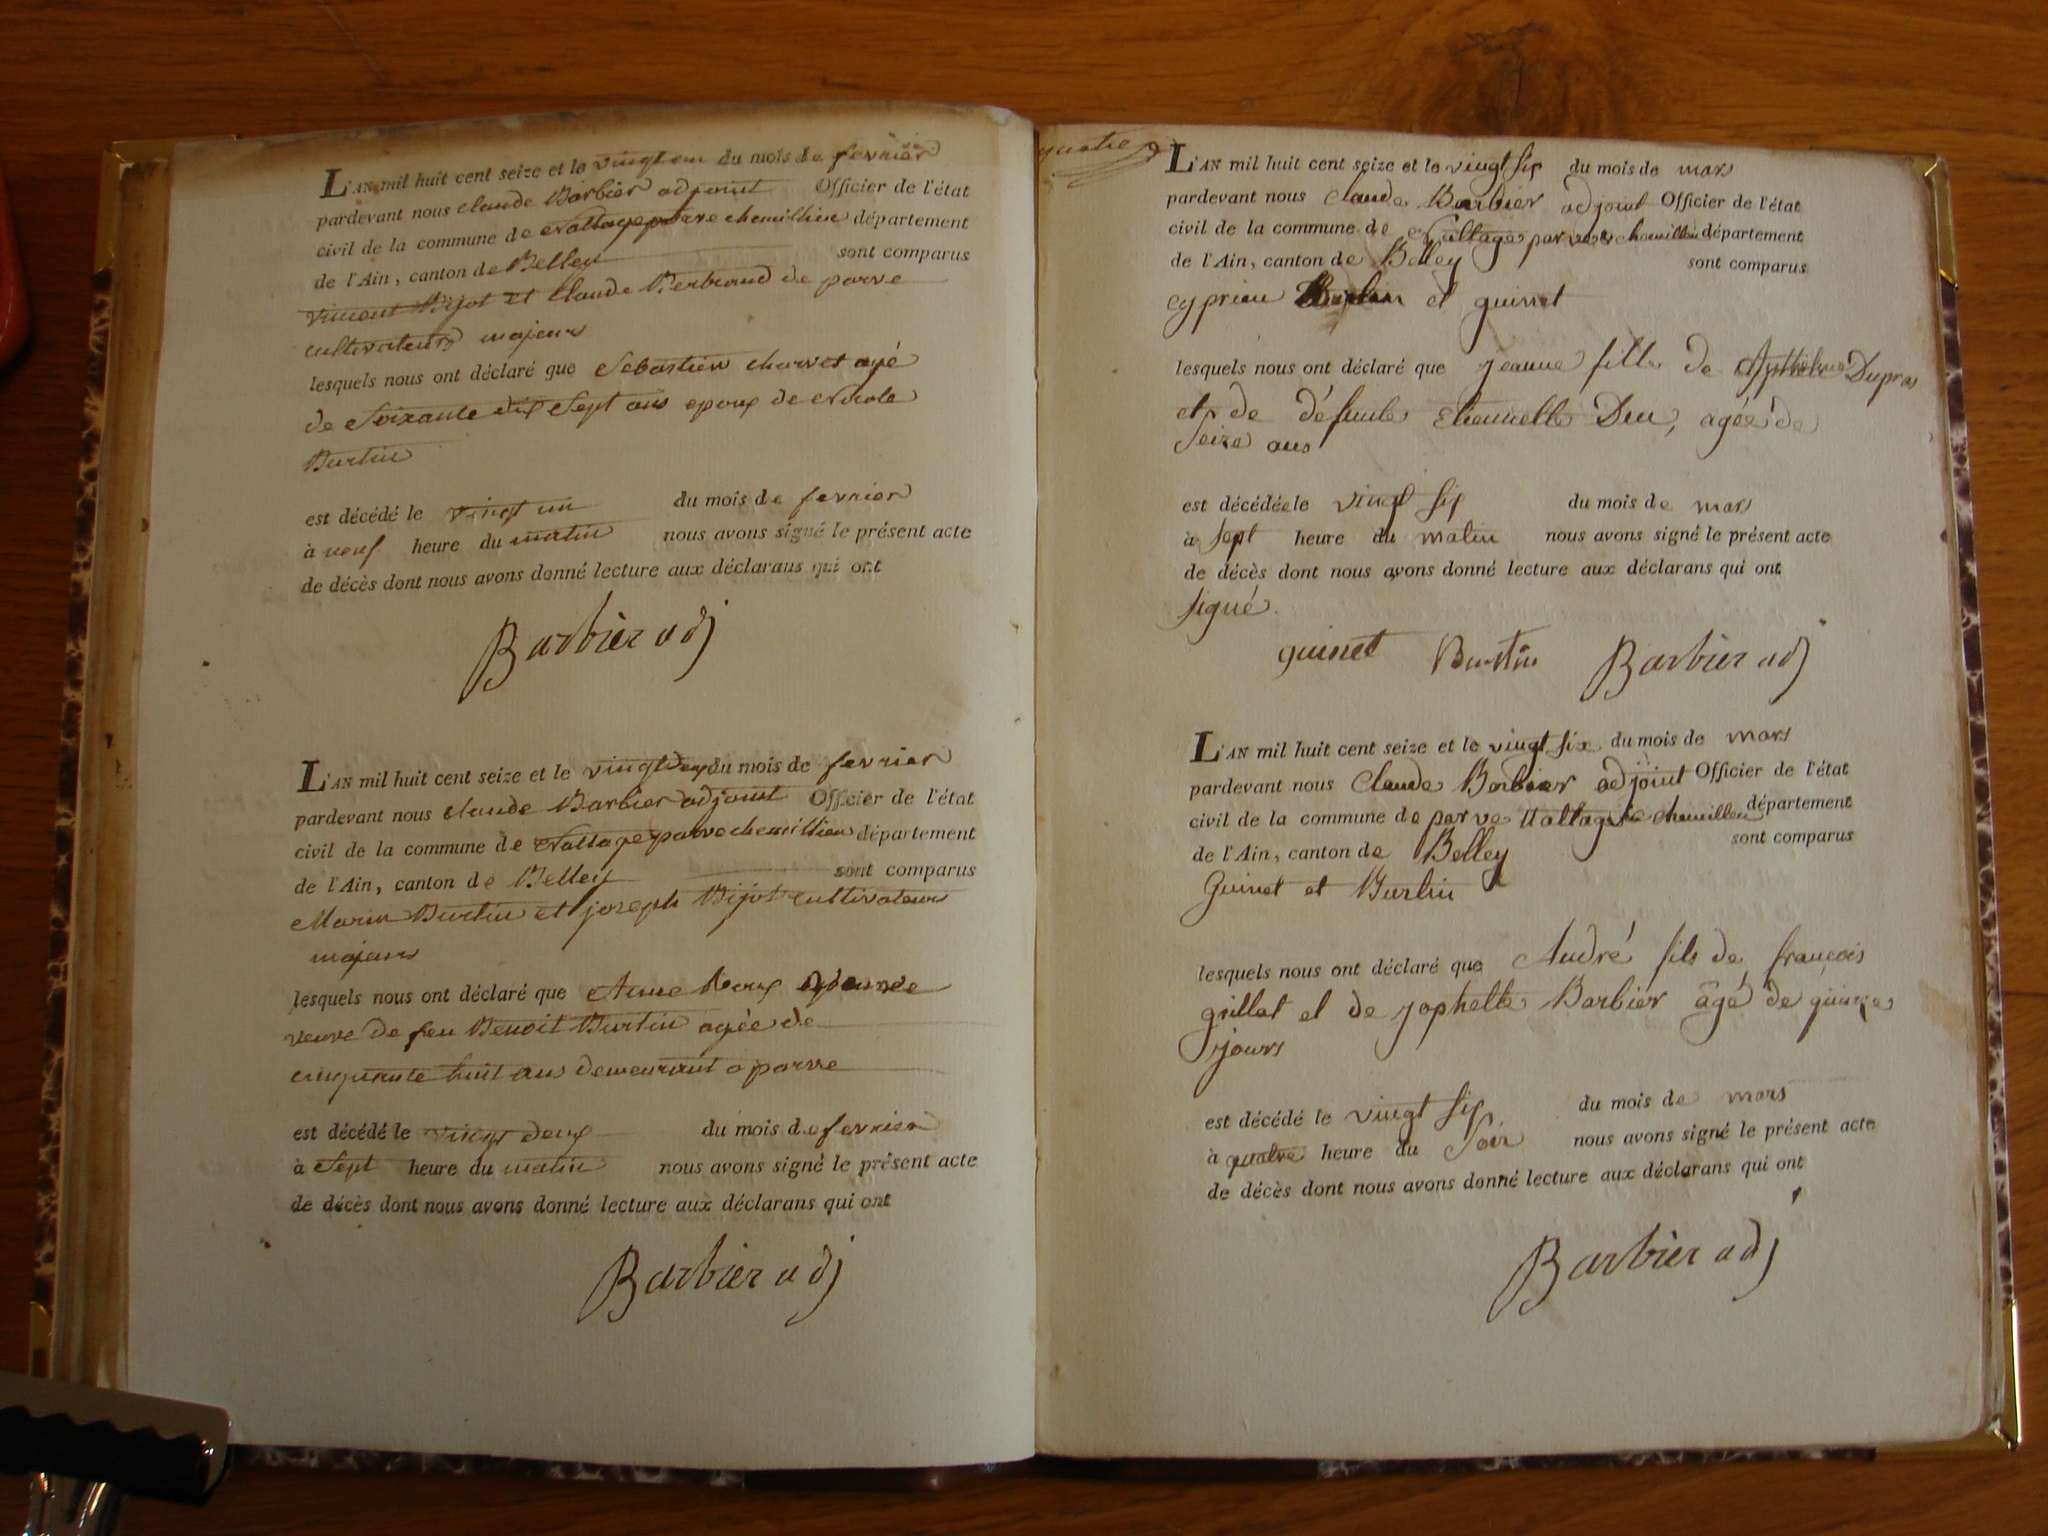 L'AN mil huit cent seize et le vingt un du mois de fevrier
pardevant nous claude Barbier adjoint Officier de l'état
civil de la commune de nattage parve chemillieu département
de l'Ain, canton de Belley sont comparus
vincent Bijot et Claude Bertrand de parve
cultivateurs majeurs
lesquels nous ont déclaré que Sebastien charvet agé
de Soixante dix Sept ans epoux de nicole
Burtin
est décédé le vingt un du mois de fevrier
à neuf heure du matin nous avons signé le présent acte
de décès dont nous avons donné lecture aux déclarans qui ont
Barbier adj
L'AN mil huit cent seize et le vingt deux du mois de fevrier
pardevant nous claude Barbier adjoint Officier de l'état
civil de la commune de nattage parve chemillieu département
de l'Ain, canton de Belley sont comparus
Marin Burtin et joseph Bijot cultivateurs
majeurs
lesquels nous ont déclaré que Anne
veuve de feu Benoit Burtin agée de
cinquante huit ans demeurant a parve
est décédé le vingt deux du mois de fevrier
à Sept heure du matin nous avons signé le présent acte
de décès dont nous avons donné lecture aux déclarans qui ont
Barbier adj
quatre
L'AN mil huit cent seize et le vingt six du mois de mars
pardevant nous claude Barbier adjoint Officier de l'état
civil de la commune de Nattages parves chemillieu département
de l'Ain, canton de Belley sont comparus
cyprien Burtin et guinet
lesquels nous ont déclaré que jeanne fille de Anthelme Dupras
et de défunte etiennette Duc, agée de
Seize ans
est décédée le vingt six du mois de mars
à sept heure du matin nous avons signé le présent acte
de décès dont nous avons donné lecture aux déclarans qui ont
signé.
guinet Burtin Barbier adj
L'AN mil huit cent seize et le vingt six du mois de mars
pardevant nous Claude Barbier adjoint Officier de l'état
civil de la commune de parve Nattage chemillieu département
de l'Ain, canton de Belley sont comparus
Guinet et Burtin
lesquels nous ont déclaré que André fils de françois
grillet et de josphette Barbier âgé de quinze
jours
est décédé le vingt six du mois de mars
à quatre heure du Soir nous avons signé le présent acte
de décès dont nous avons donné lecture aux déclarans qui ont
Barbier adj